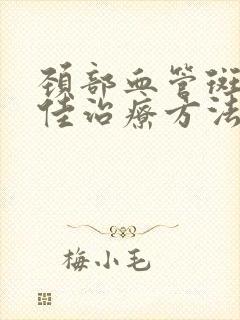 颈部血管斑
佳治疗方法
梅小毛